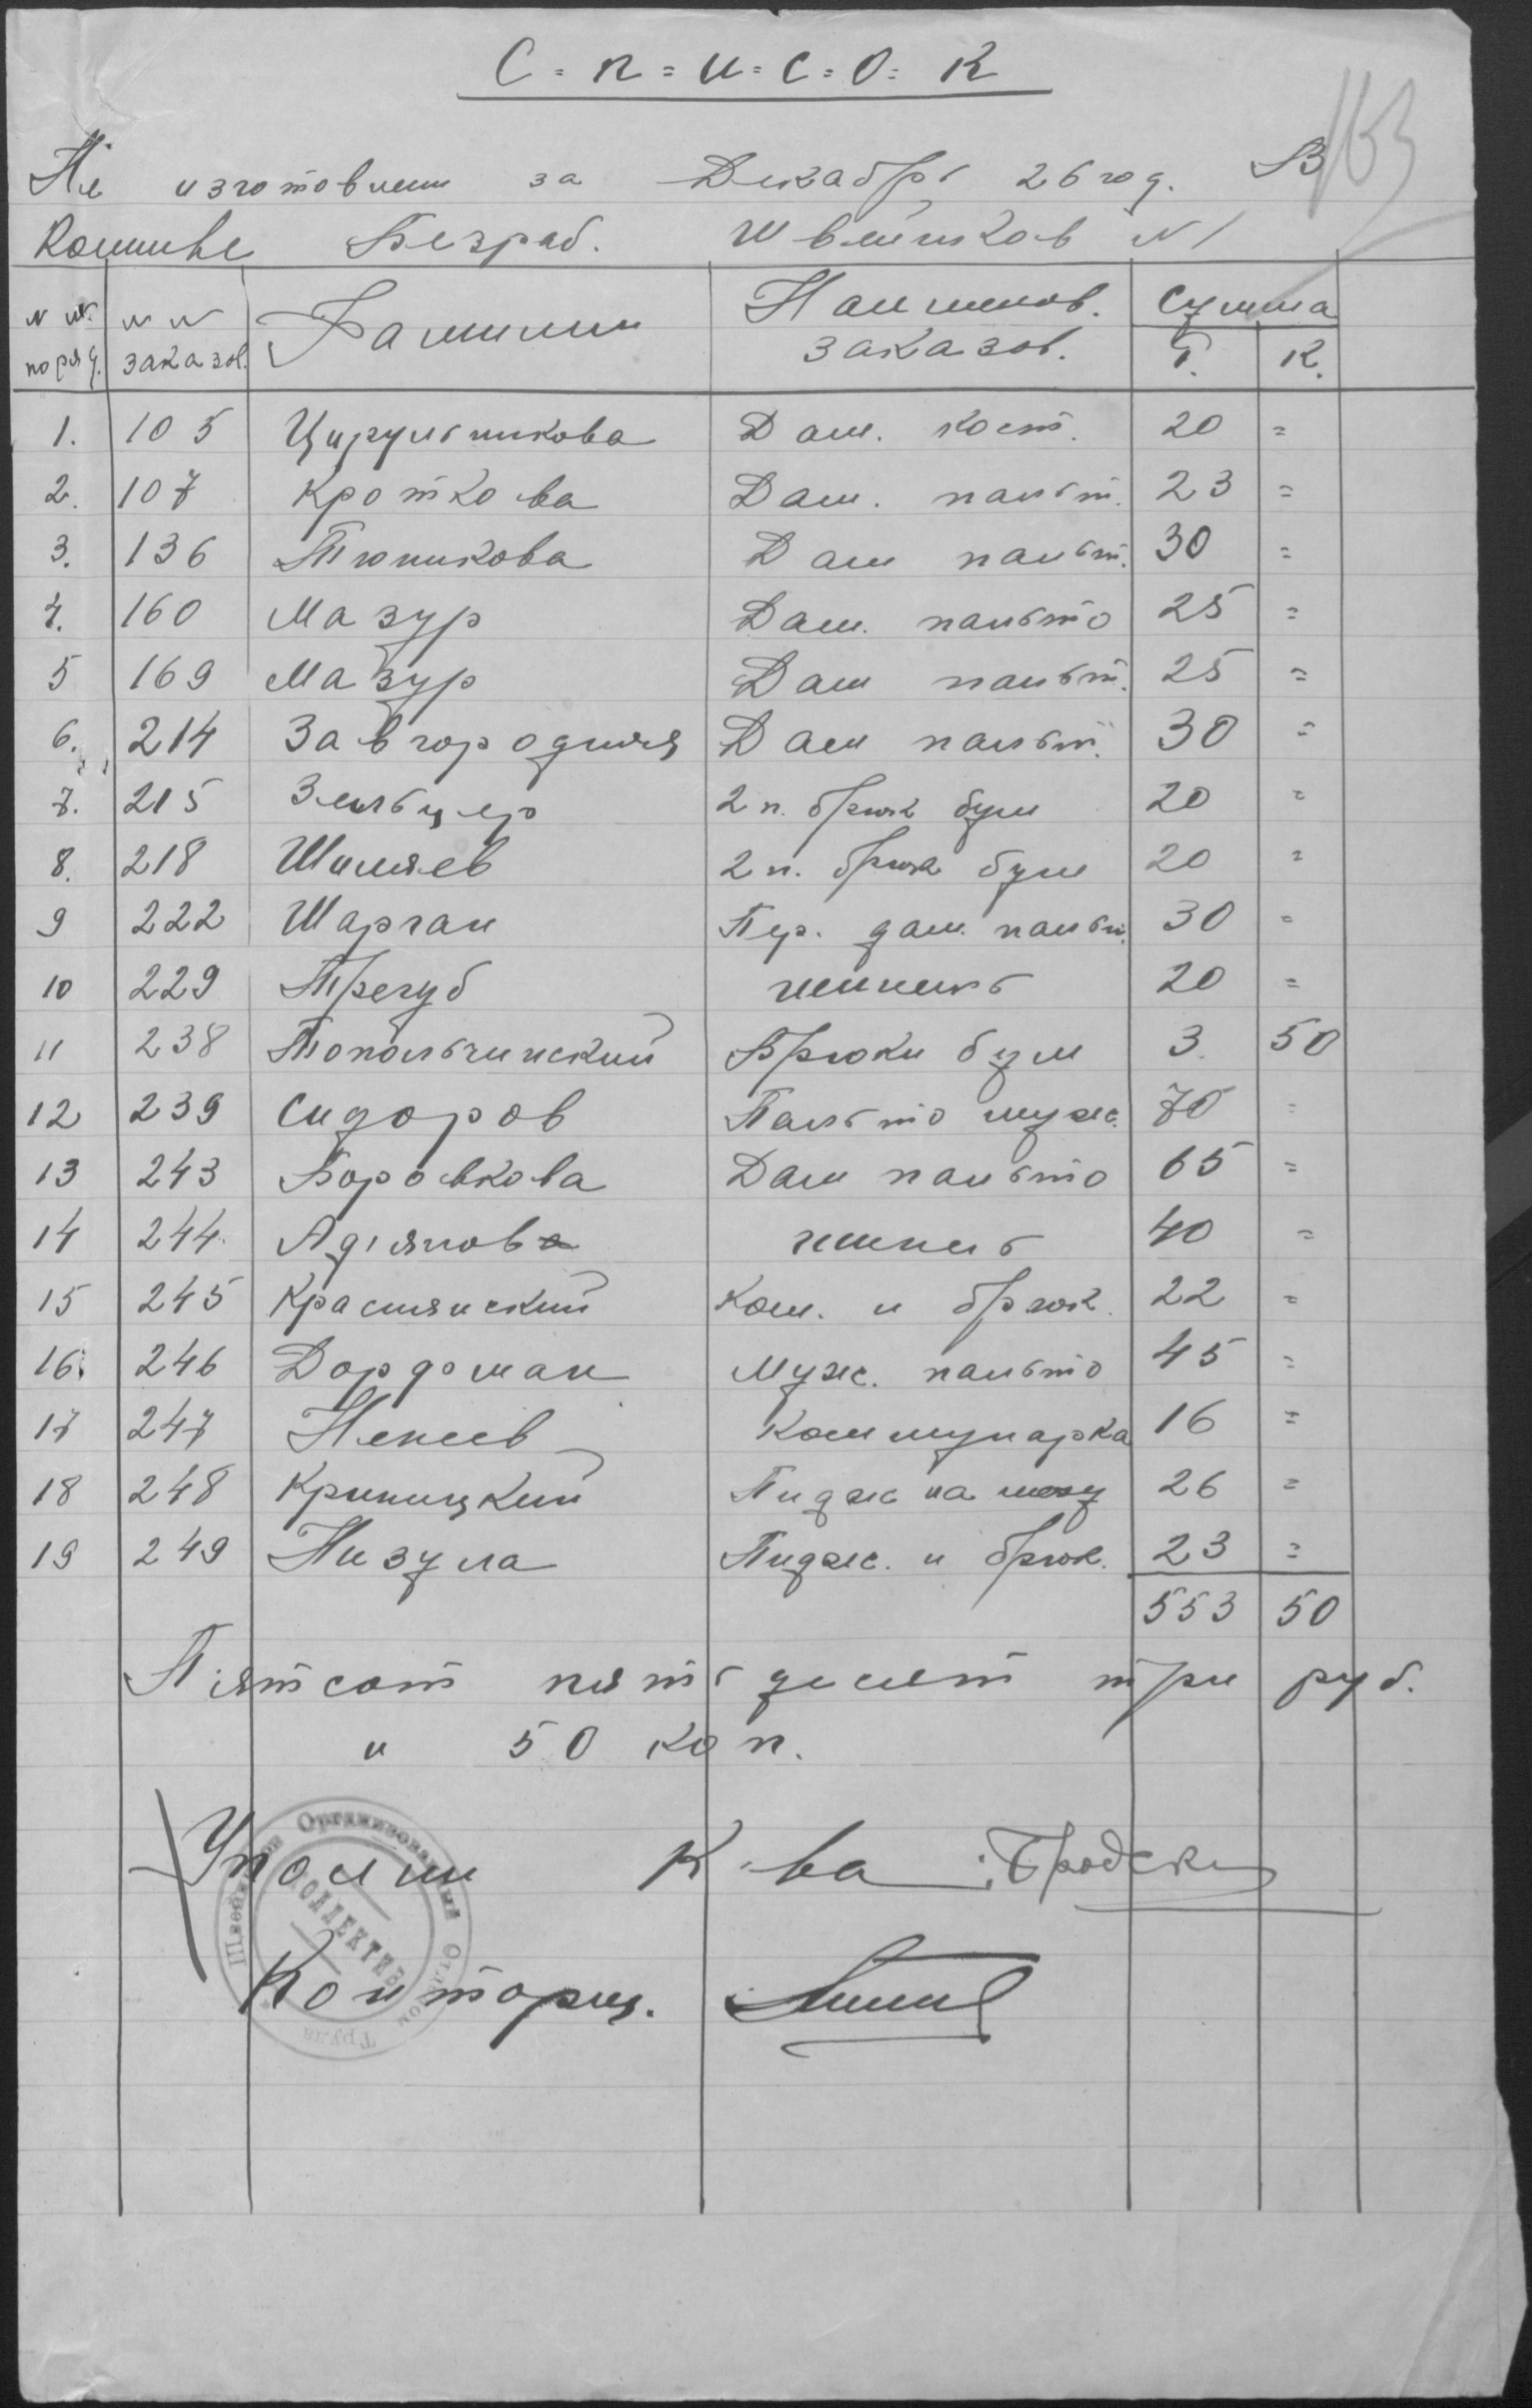 С = п = и = с = о = к
163
Не изготовлен за Декабрь 26 год. В
Комиве Безраб. Швейников N1
N N поряд. N N заказов. Фамилии Наименов. заказов. Сумма Р. К.
1. 105 Цирульникова Дам. кост. 20 =
2. 107 Кроткова Дам. пальт. 23 =
3. 136 Тюникова Дам пальт. 30 =
4. 160 Мазур Дам. пальто 25 =
5 169 Мазур Дам пальт. 25 =
6. 214 Завгородняя Дам пальт. 30 =
7. 215 Зельцер 2 п. брюк бум 20 =
8. 218 Шиляев 2 п. брюк бум 20 =
9 222 Шарган Пер. дам. пальт. 30 =
10 229 Трегуб шинель 20 =
11 238 Топольчинский Брюки бум 3. 50
12 239 Сидоров Пальто муж. 70 =
13 243 Боровкова Дам пальто 65 =
14 244 Адянов шинель 40 =
15 245 Краснянский Кост. и брюк. 22 =
16. 246 Дордоман Муж. пальто 45 =
17 247 Ненеев Коммунарка 16 =
18 248 Криницкий Пидж на меху 26 =
19 249 Низула Пидж. и брюк. 23 =
553 50
Пятсот пятьдесят три руб.
и 50 коп.
Уполн К-ва Бродский
Конторщ.
Швейный Организованный Отделом Труда
КОЛЛЕКТИВ